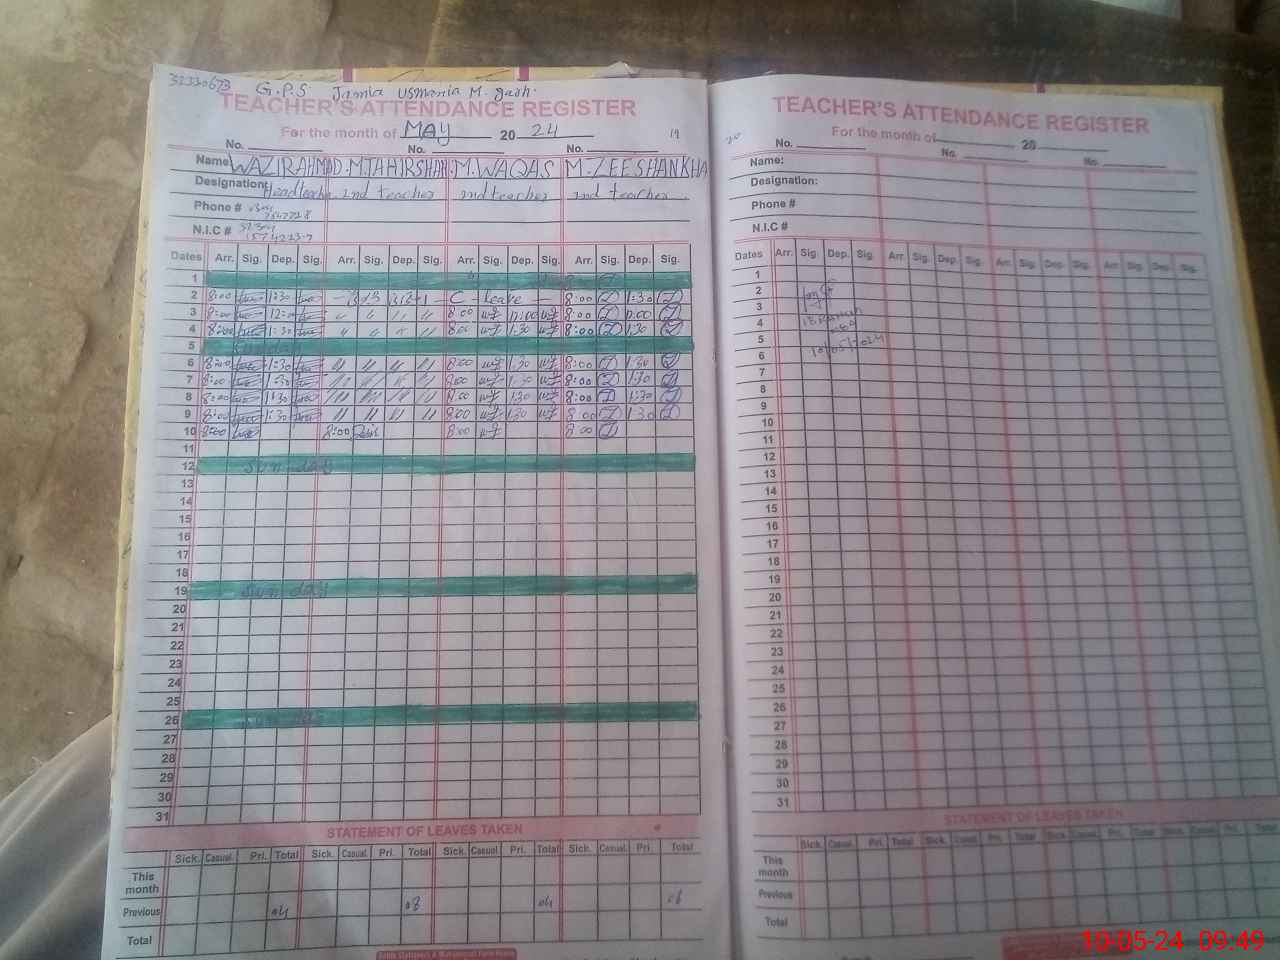 32330673 G.P.S Jamia Usmania M. gadh.
TEACHER'S ATTENDANCE REGISTER
For the month of MAY 2024 19
No. No. No.
Name WAZIRAHMAD. M.TAHIRSHAH M.WAQAS M.ZEESHANKHA
Designation: Headteacher 2nd teacher 2nd teacher 2nd teacher
Phone #
N.I.C #
Dates Arr. Sig. Dep. Sig. Arr. Sig. Dep. Sig. Arr. Sig. Dep. Sig. Arr. Sig. Dep. Sig.
1
2 8:00 1:30 C - leave - 8:00 1:30
3 8:00 12:00 " " " " 8:00 12:00 8:00 12:00
4 8:00 1:30 " " " " 8:00 1:30 8:00 1:30
5
6 8:00 1:30 " " " " 8:00 1:30 8:00 1:30
7 8:00 1:30 " " " " 8:00 1:30 8:00 1:30
8 8:00 1:30 " " " " 8:00 1:30 8:00 1:30
9 8:00 1:30 " " " " 8:00 1:30 8:00 1:30
10 8:00 8:00 8:00 8:00
11
12 Sun day
13
14
15
16
17
18
19 Sun day
20
21
22
23
24
25
26
27
28
29
30
31
STATEMENT OF LEAVES TAKEN
Sick. Casual. Pri. Total Sick. Casual. Pri. Total Sick. Casual. Pri. Total Sick. Casual. Pri. Total
This month
Previous 04 08 04 08
Total
TEACHER'S ATTENDANCE REGISTER
For the month of 20
20 No. No. No.
Name:
Designation:
Phone #
N.I.C #
Dates Arr. Sig. Dep. Sig. Arr. Sig. Dep. Sig. Arr. Sig. Dep. Sig. Arr. Sig. Dep. Sig.
1
2
3
4
5 10/05/2024
6
7
8
9
10
11
12
13
14
15
16
17
18
19
20
21
22
23
24
25
26
27
28
29
30
31
STATEMENT OF LEAVES TAKEN
Sick. Casual. Pri. Total Sick. Casual. Pri. Total Sick. Casual. Pri. Total Sick. Casual. Pri. Total
This month
Previous
Total
10-05-24 09:49